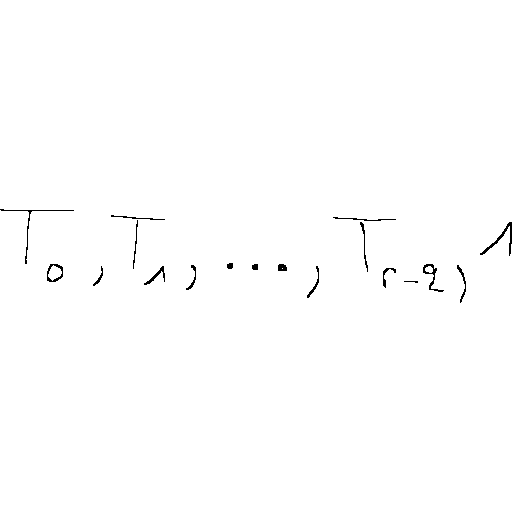 T_0, T_1, ..., T_{r-q}, 1